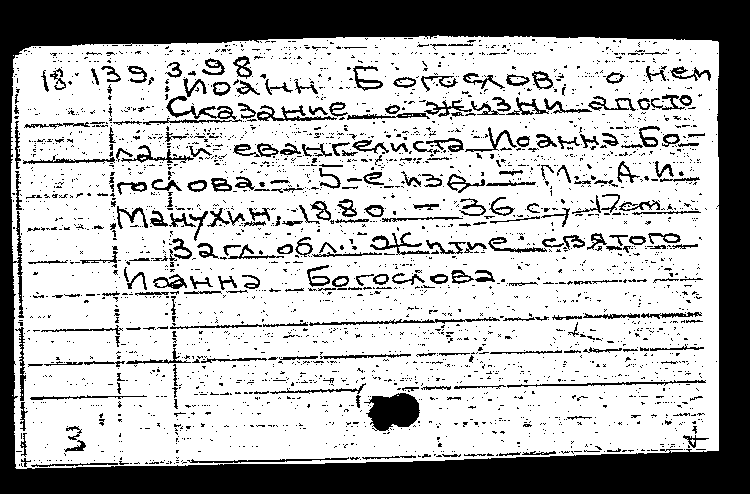 18. 139. 3. 98.
Иоанн Богослов, о нем
Сказание о жизни апосто
ла и евангелиста Иоанна Бо-
гослова. – 5-е изд. – М.: А.И.
Манухин, 1880. – 36 с.; 17cm.
Загл. обл.: Житие святого
Иоанна Богослова.